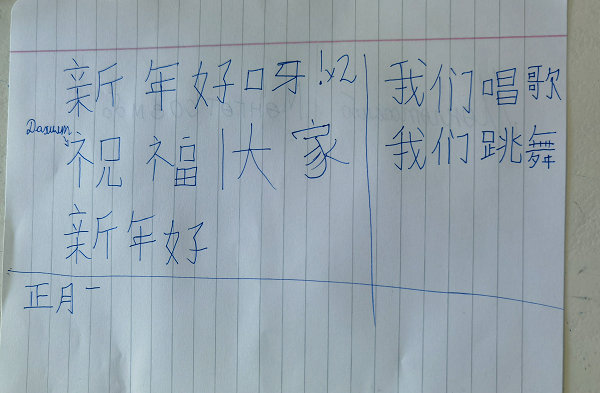 新年好口牙!x2
祝福|大家
新年好
我们唱歌
我们跳舞
正月一